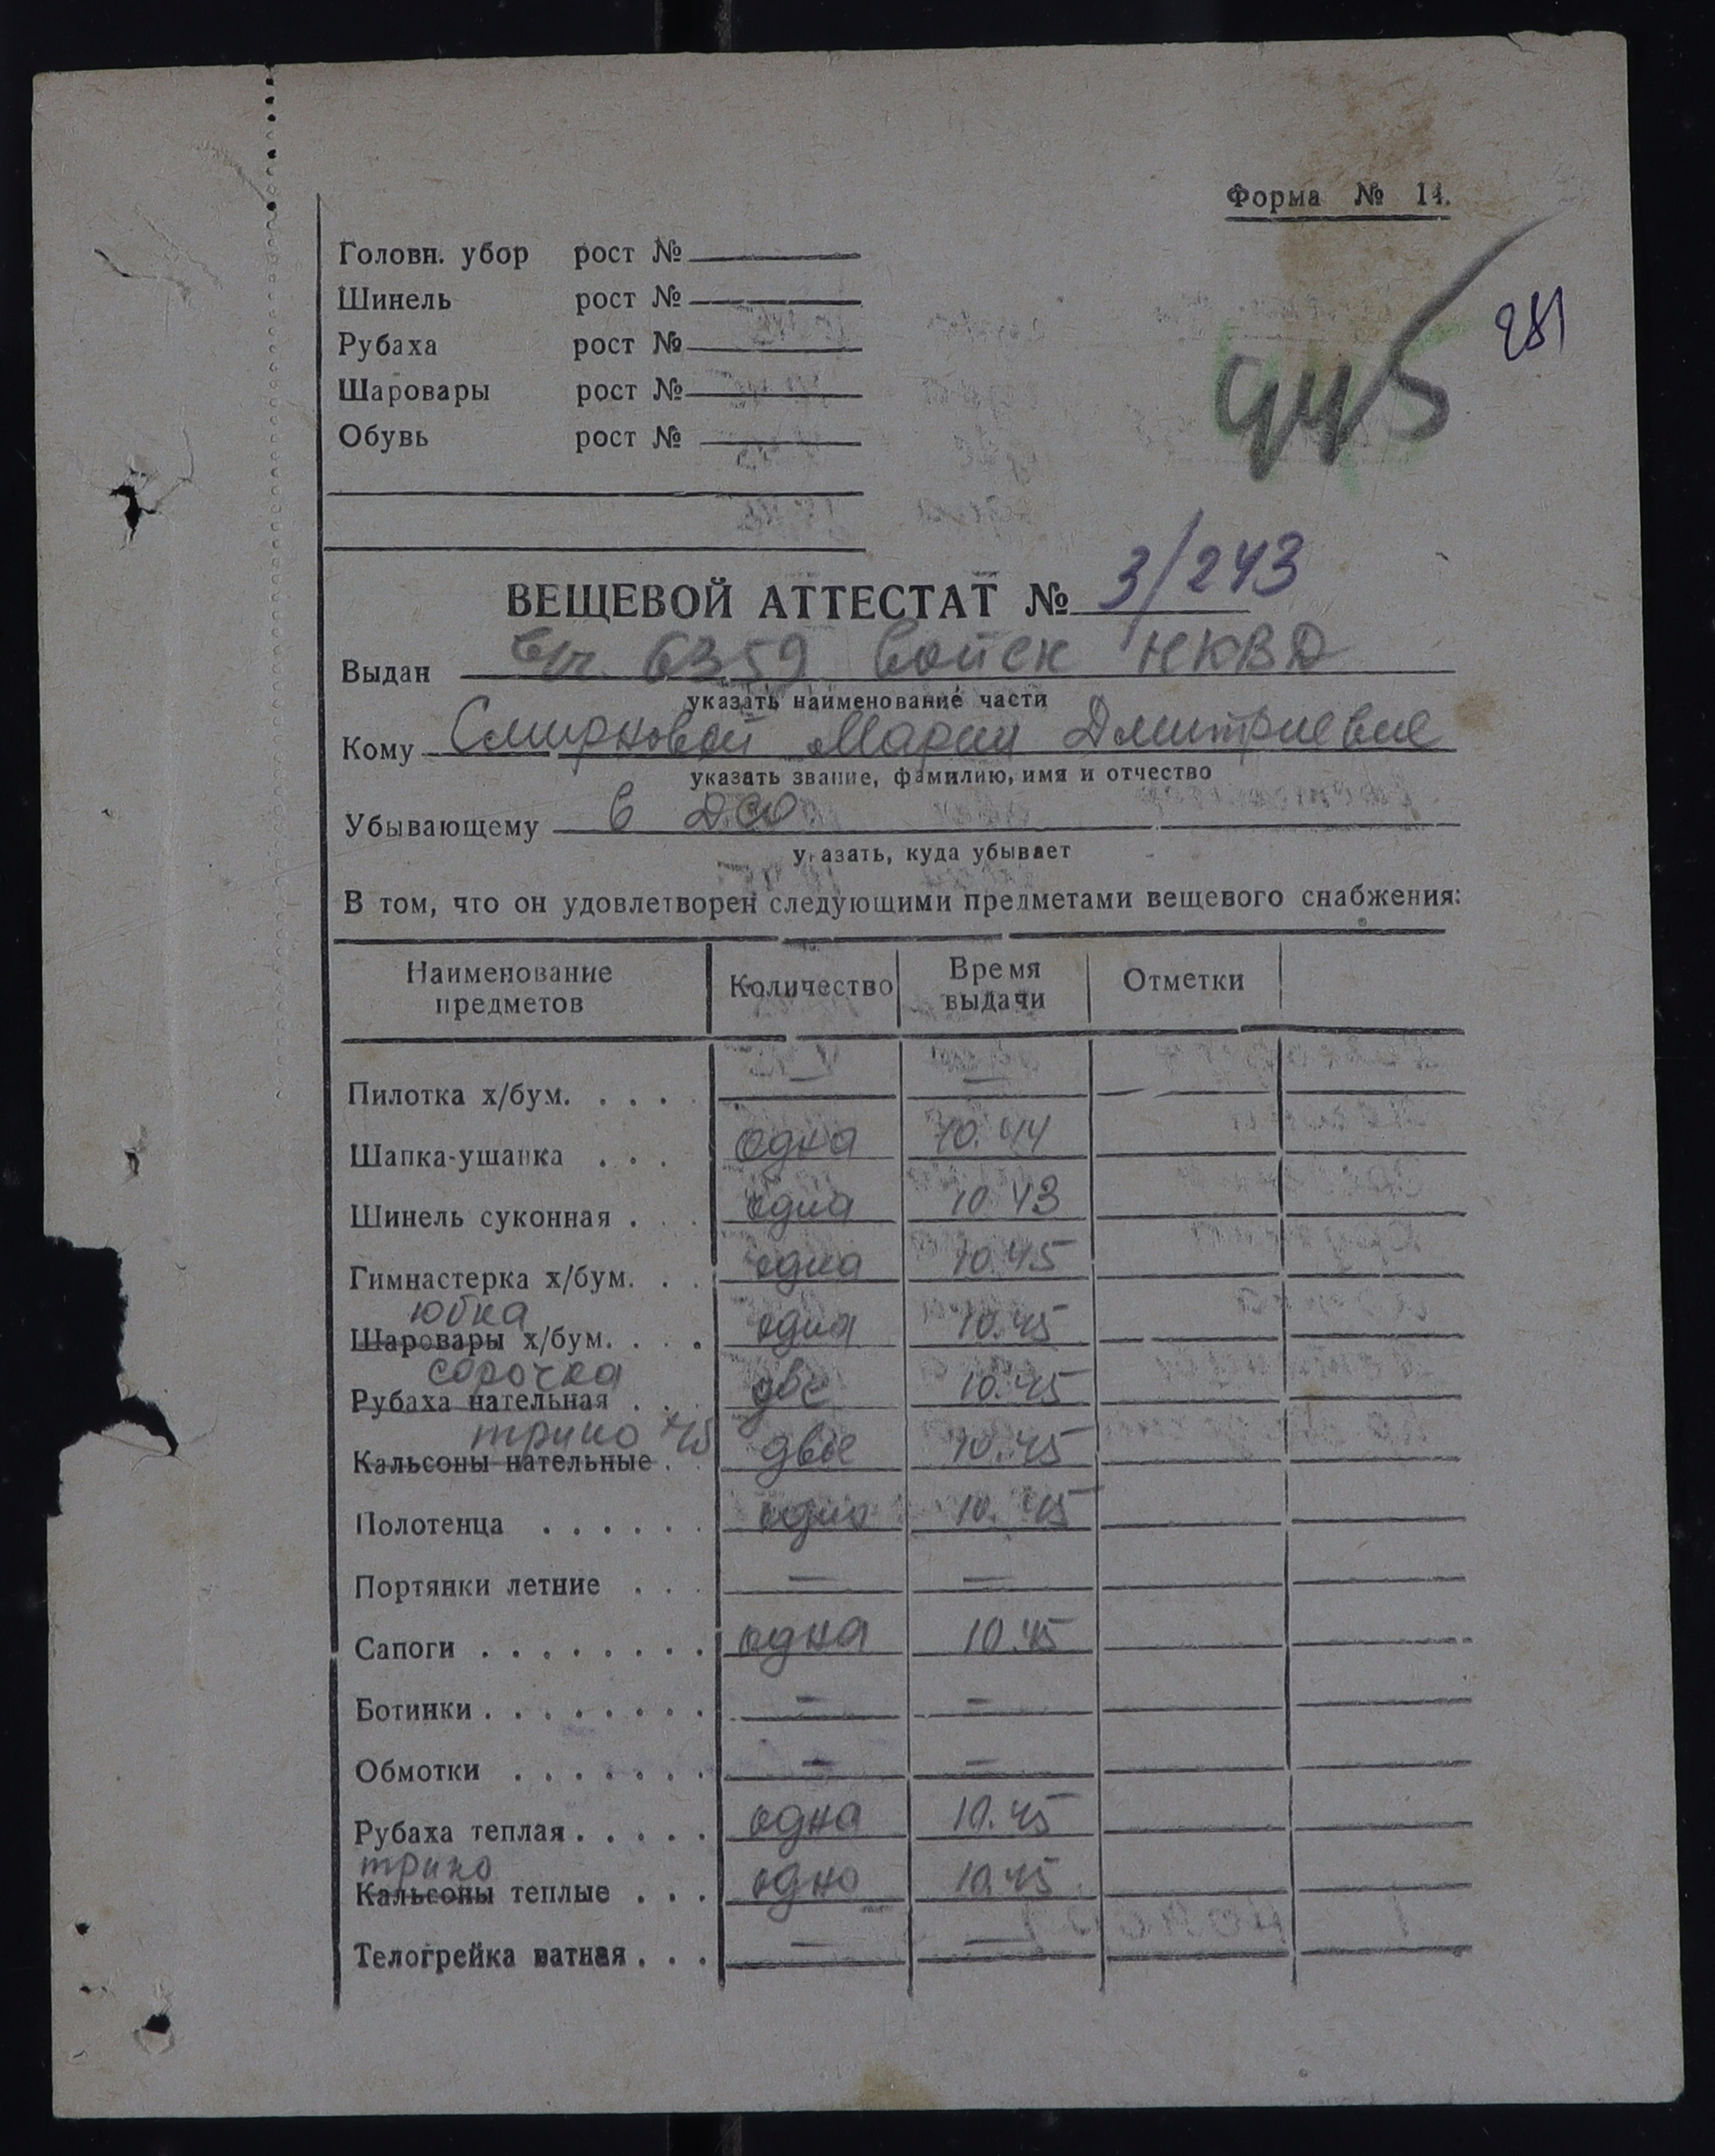 Форма № 14.
Головн. убор рост №
Шинель рост №
Рубаха рост №
Шаровары рост №
Обувь рост №
445
281
ВЕЩЕВОЙ АТТЕСТАТ № 3/243
Выдан в/ч. 6359 войск НКВД
указать наименование части
Кому Смирновой Марии Дмитриевне
указать звание, фамилию, имя и отчество
Убывающему в ДСО
у азать, куда убывает
В том, что он удовлетворен следующими предметами вещевого снабжения:
Наименование предметов Количество Время выдачи Отметки
Пилотка х/бум. . . . — —
Шапка-ушанка . . . одна 10.44
Шинель суконная . . . одна 10.43
Гимнастерка х/бум. . . одна 10.45
юбка
Шаровары х/бум. . . . одна 10.45
сорочка
Рубаха нательная . . . две 10.45
трико
Кальсоны нательные . . двое 10.45
Полотенца . . . . . . одно 10.45
Портянки летние . . . — —
Сапоги . . . . . . . . одна 10.45
Ботинки . . . . . . . . — —
Обмотки . . . . . . . — —
Рубаха теплая . . . . . одна 10.45
трико
Кальсоны теплые . . . одно 10.45
Телогрейка ватная . . . — —